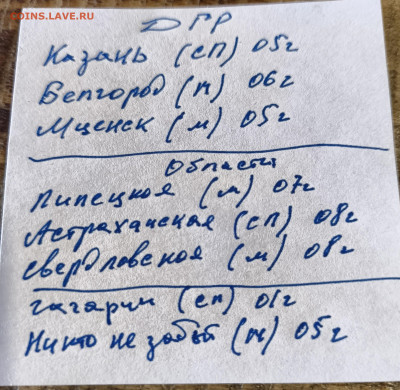 COINS.LAVE.RU
ДГР
Казань (сп) 05г
Белгород (м) 06г
Мценск (м) 05г
Области
Липецкая (м) 07г
Астраханская (сп) 08г
Свердловская (м) 08г
гагарин (сп) 01г
Никто не забыт (м) 05г